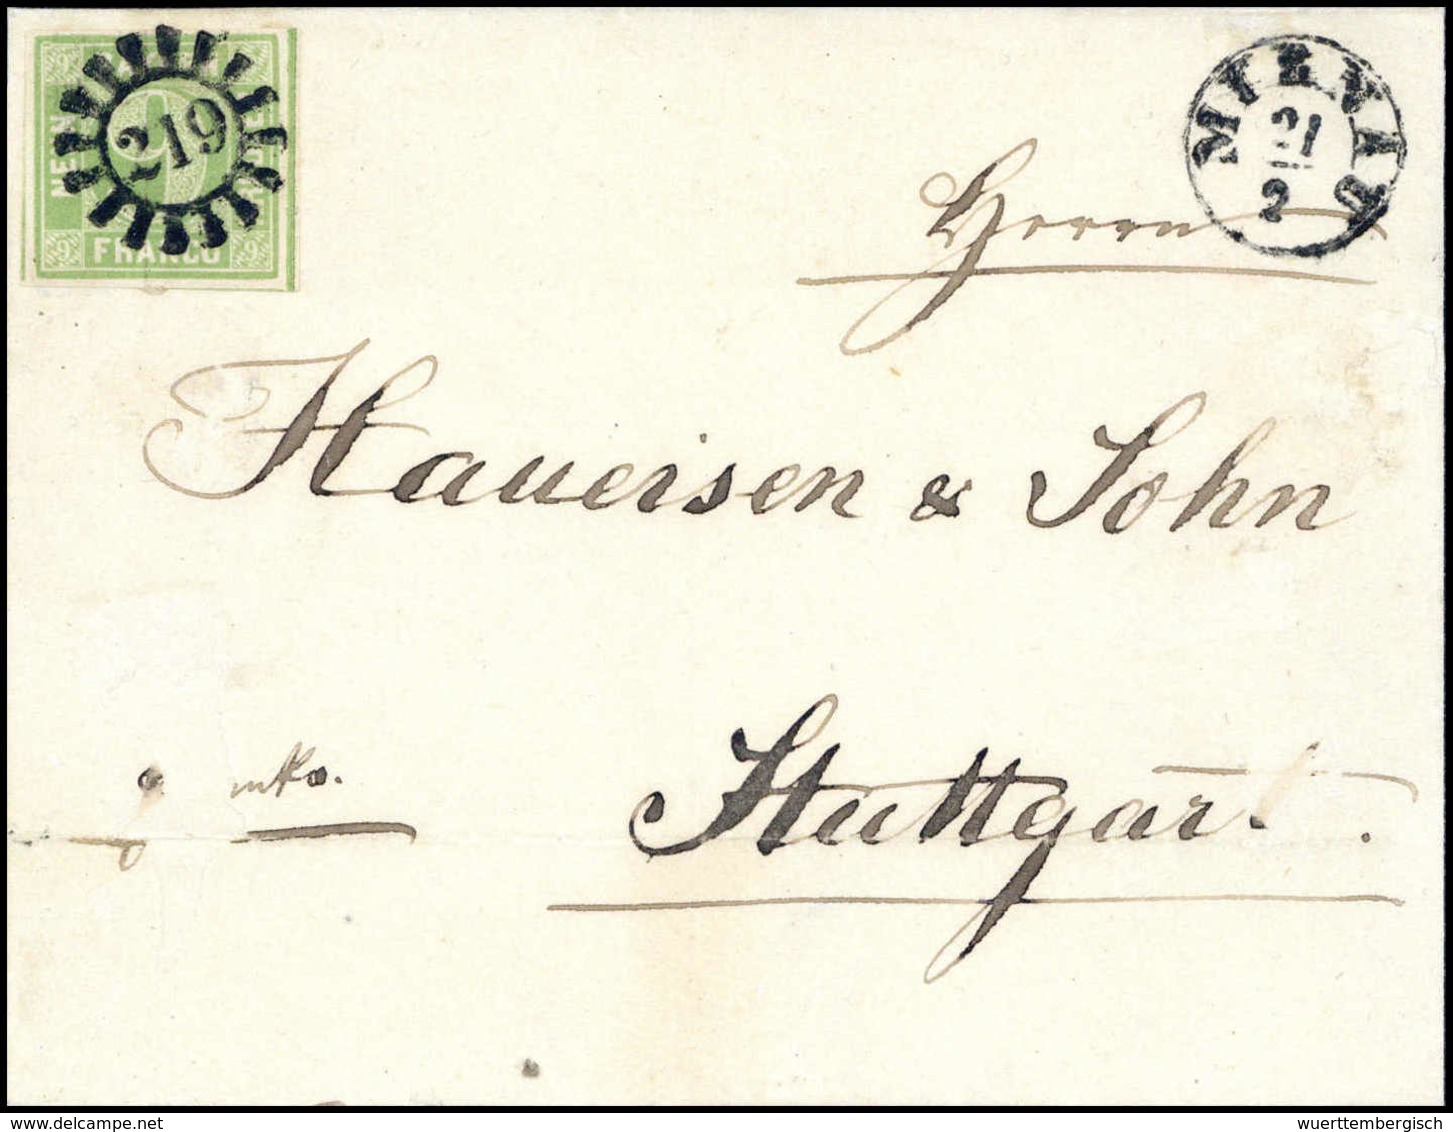 NEUN
219
9
FRANCO
9
9
MIRNAU
21
2
Herrn
Haueisen & Sohn
Stuttgart.
www.delcampe.net
wuerttembergisch